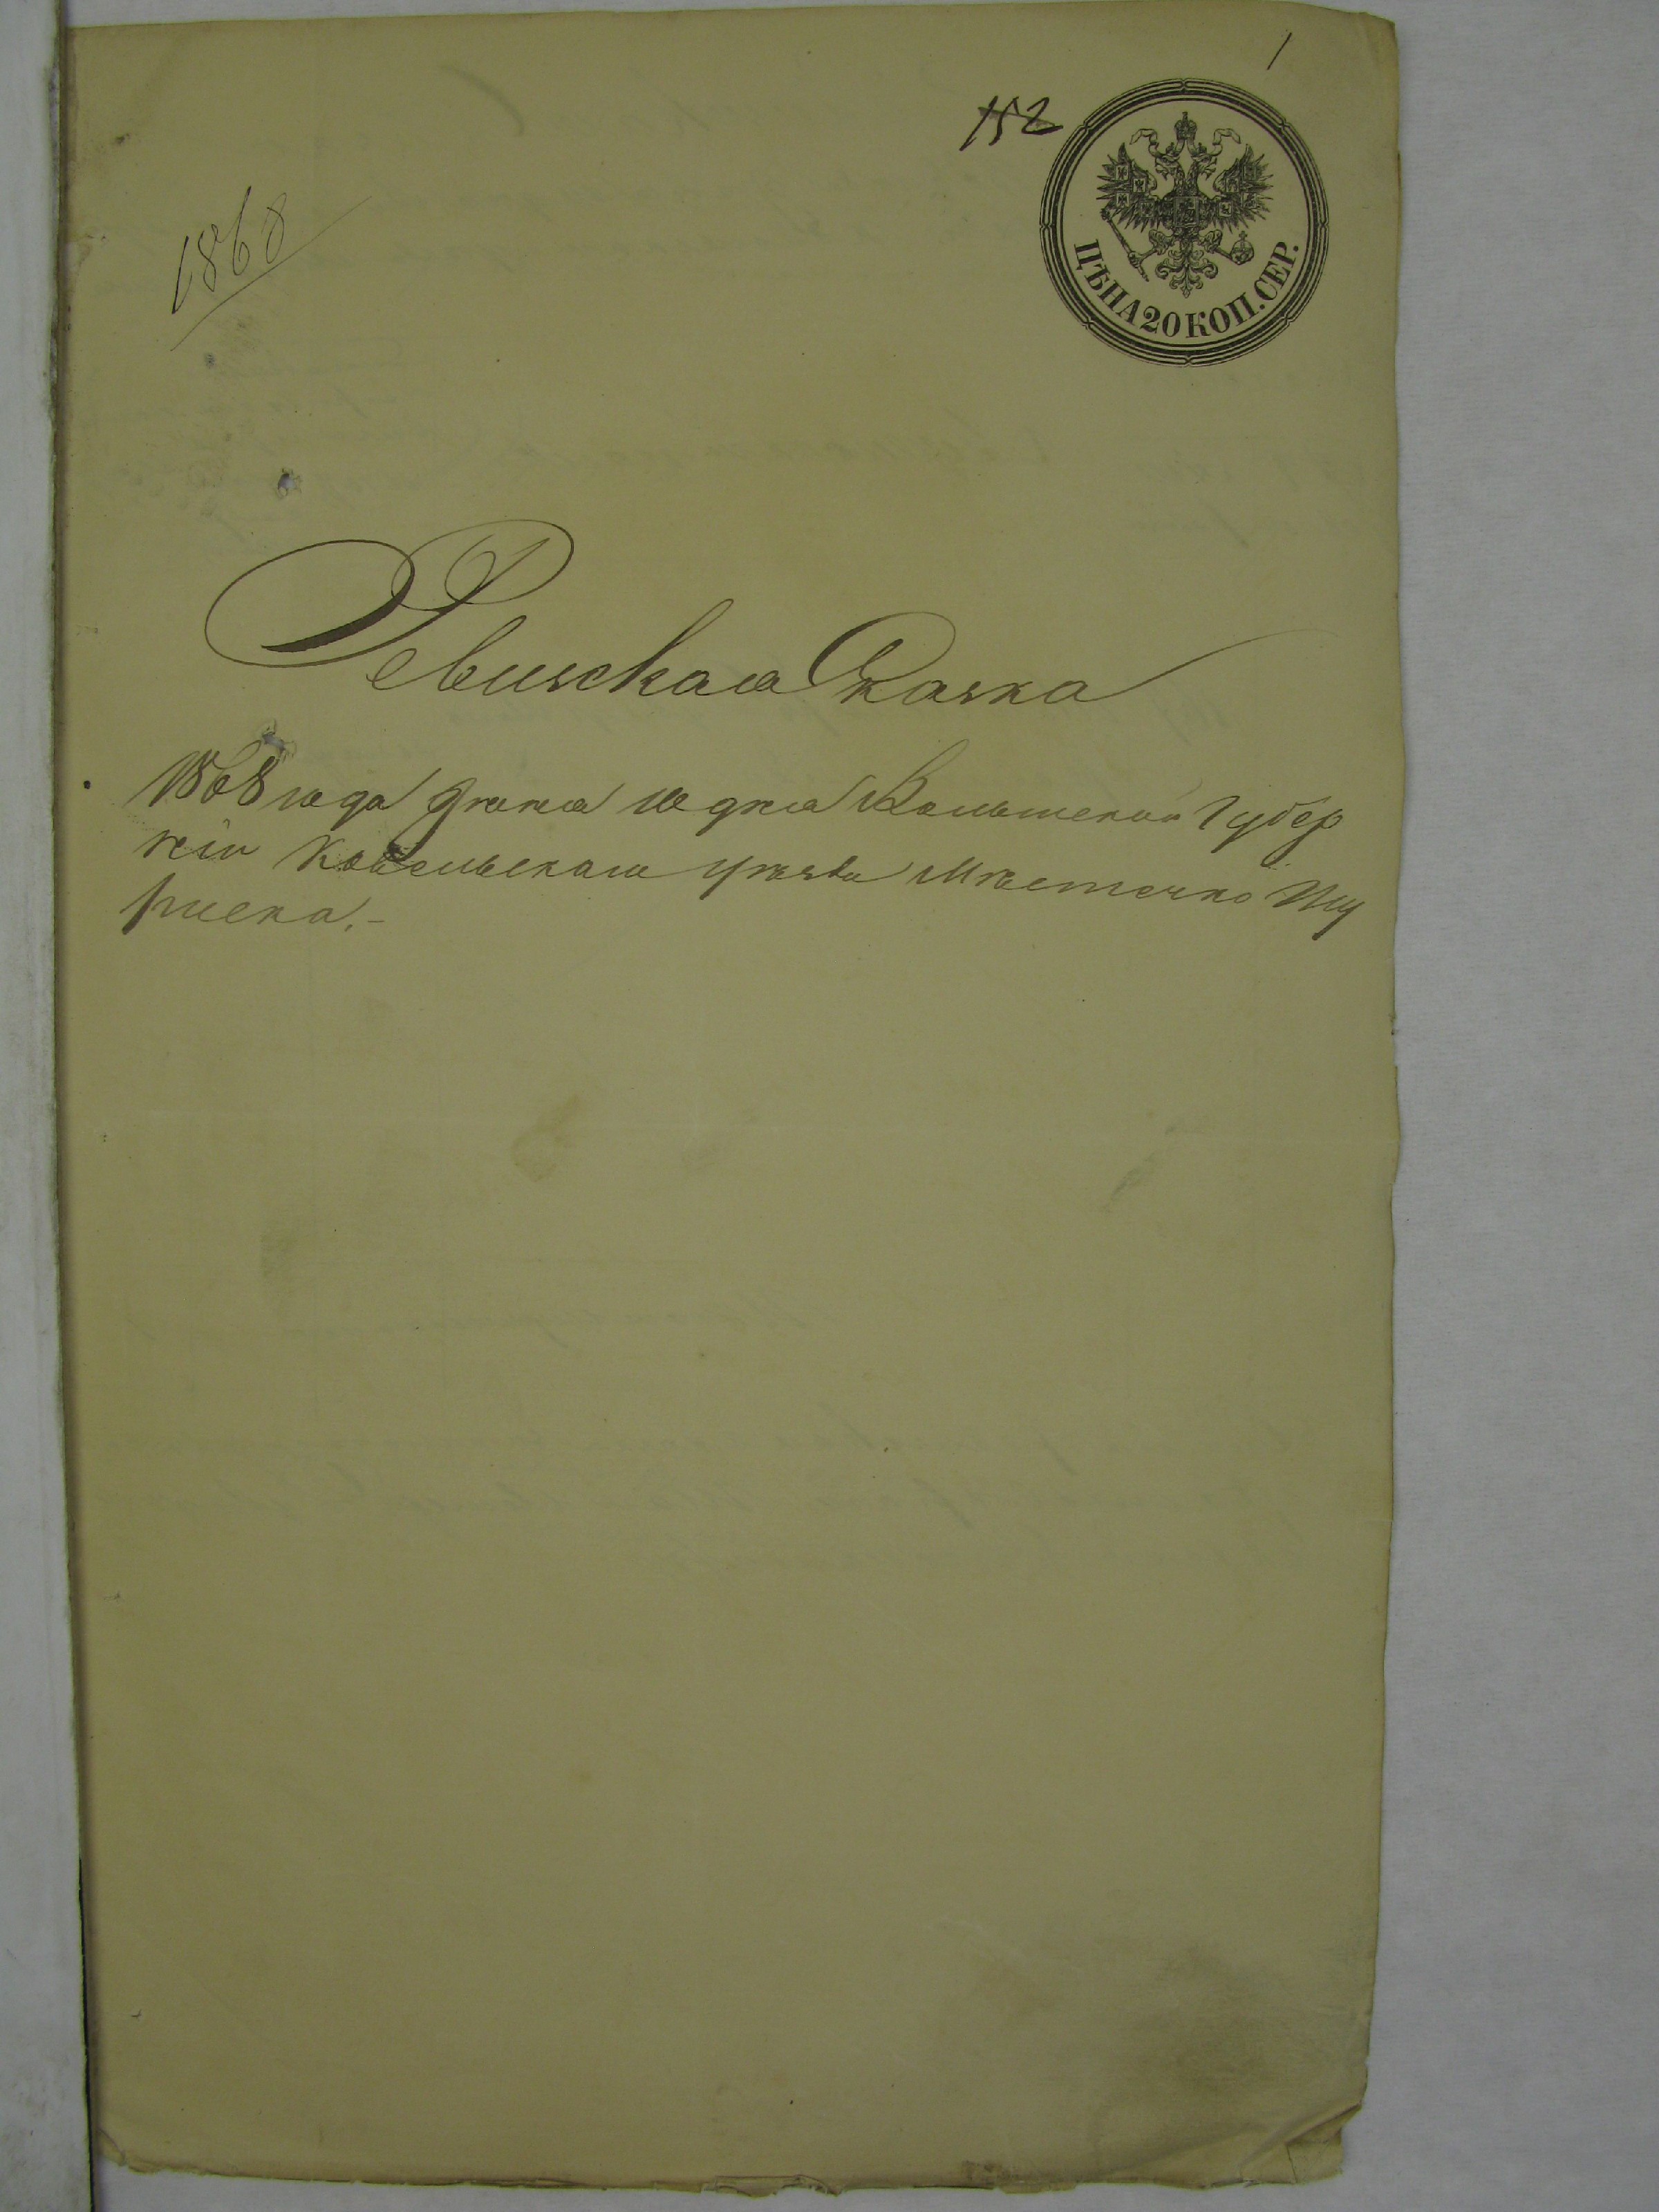 1
152
1868
ЦѢНА 20 КОП. СЕР.
Ревизская Сказка
1868 года Июня дня Волынской Губер
ніи Ковельскаго уѣзда Мѣстечко Ту
риска.-